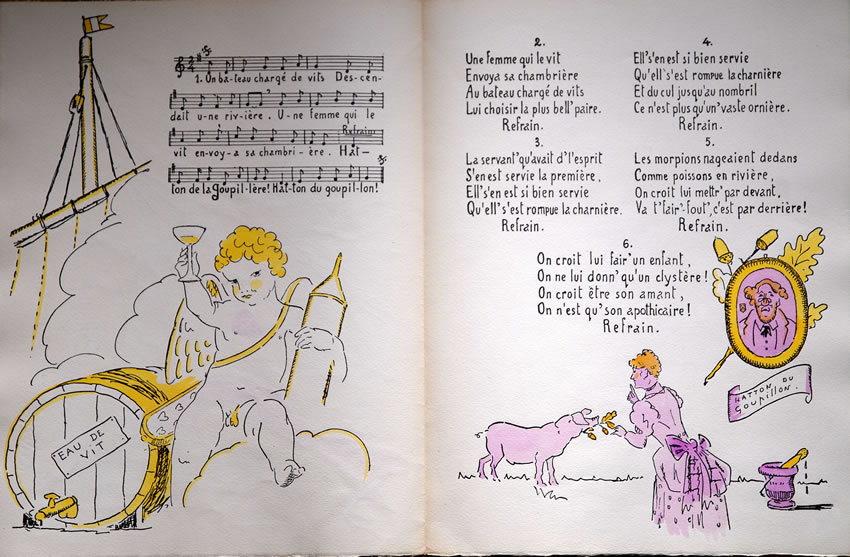 1. Un ba-teau chargé de vits Des-cen-
dait u-ne riv-ière. U-ne femme qui le
Refrain
vit en-voy-a sa chambri-ère. Hat-
ton de la Goupil-lère! Hat-ton du goupil-lon!
EAU DE
VIT
2.
Une femme qui le vit
Envoya sa chambrière
Au bateau chargé de vits
Lui choisir la plus bell' paire.
Refrain.
3.
La servant' qu'avait d'l'esprit
S'en est servie la première,
Ell's'en est si bien servie
Qu'ell's'est rompue la charnière.
Refrain.
4.
Ell's'en est si bien servie
Qu'ell's'est rompue la charnière
Et du cul jusqu'au nombril
Ce n'est plus qu'un' vaste ornière.
Refrain.
5.
Les morpions nageaient dedans
Comme poissons en rivière,
On croit lui mettr' par devant,
Va t'fair'-fout', c'est par derrière!
Refrain.
6.
On croit lui fair' un enfant,
On ne lui donn' qu'un clystère!
On croit être son amant,
On n'est qu'son apothicaire!
Refrain.
HATTON DU
GOUPILLON.